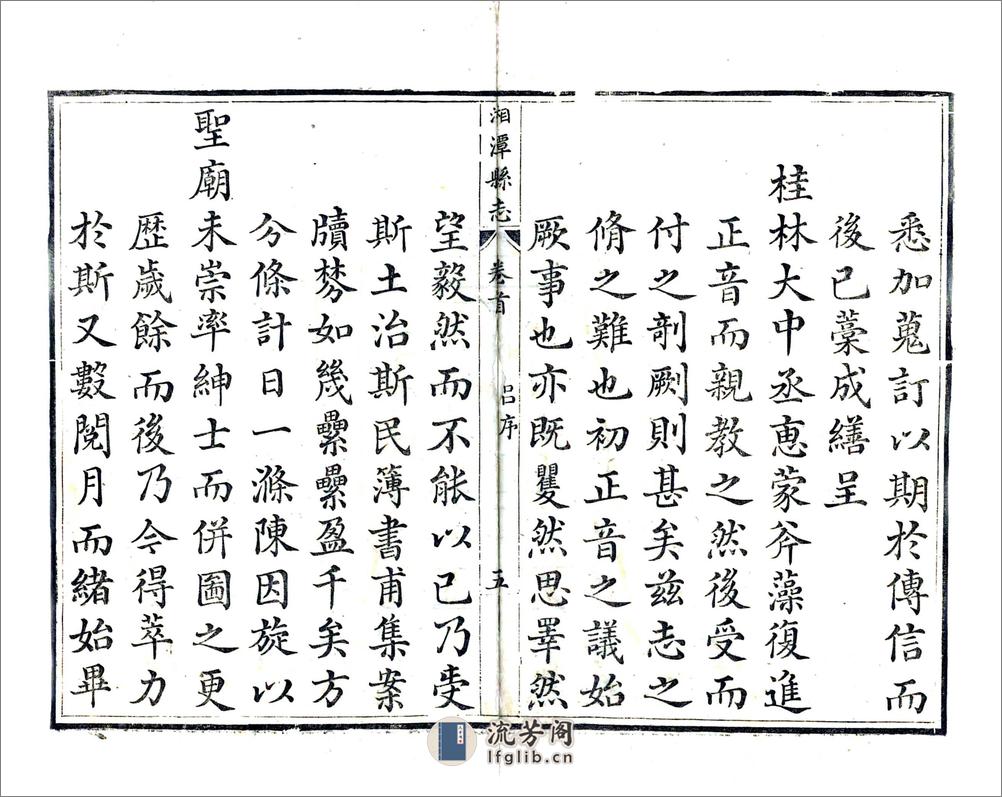 悉加蒐訂以期於傳信而
後已藁成繕呈
桂林大中丞恵蒙斧藻復進
正音而親教之然後受而
付之剞劂則甚矣兹志之
脩之難也初正音之議始
厥事也亦既矍然思睪然
湘潭縣志
卷首
吕序
五
望毅然而不能以已乃叓
斯土治斯民簿書甫集案
牘棼如幾纍纍盈千矣方
分條計日一滌陳因旋以
聖廟未崇率紳士而併圖之更
歴歲餘而後乃今得萃力
於斯又數閱月而緒始畢
流芳阁
lfglib.cn